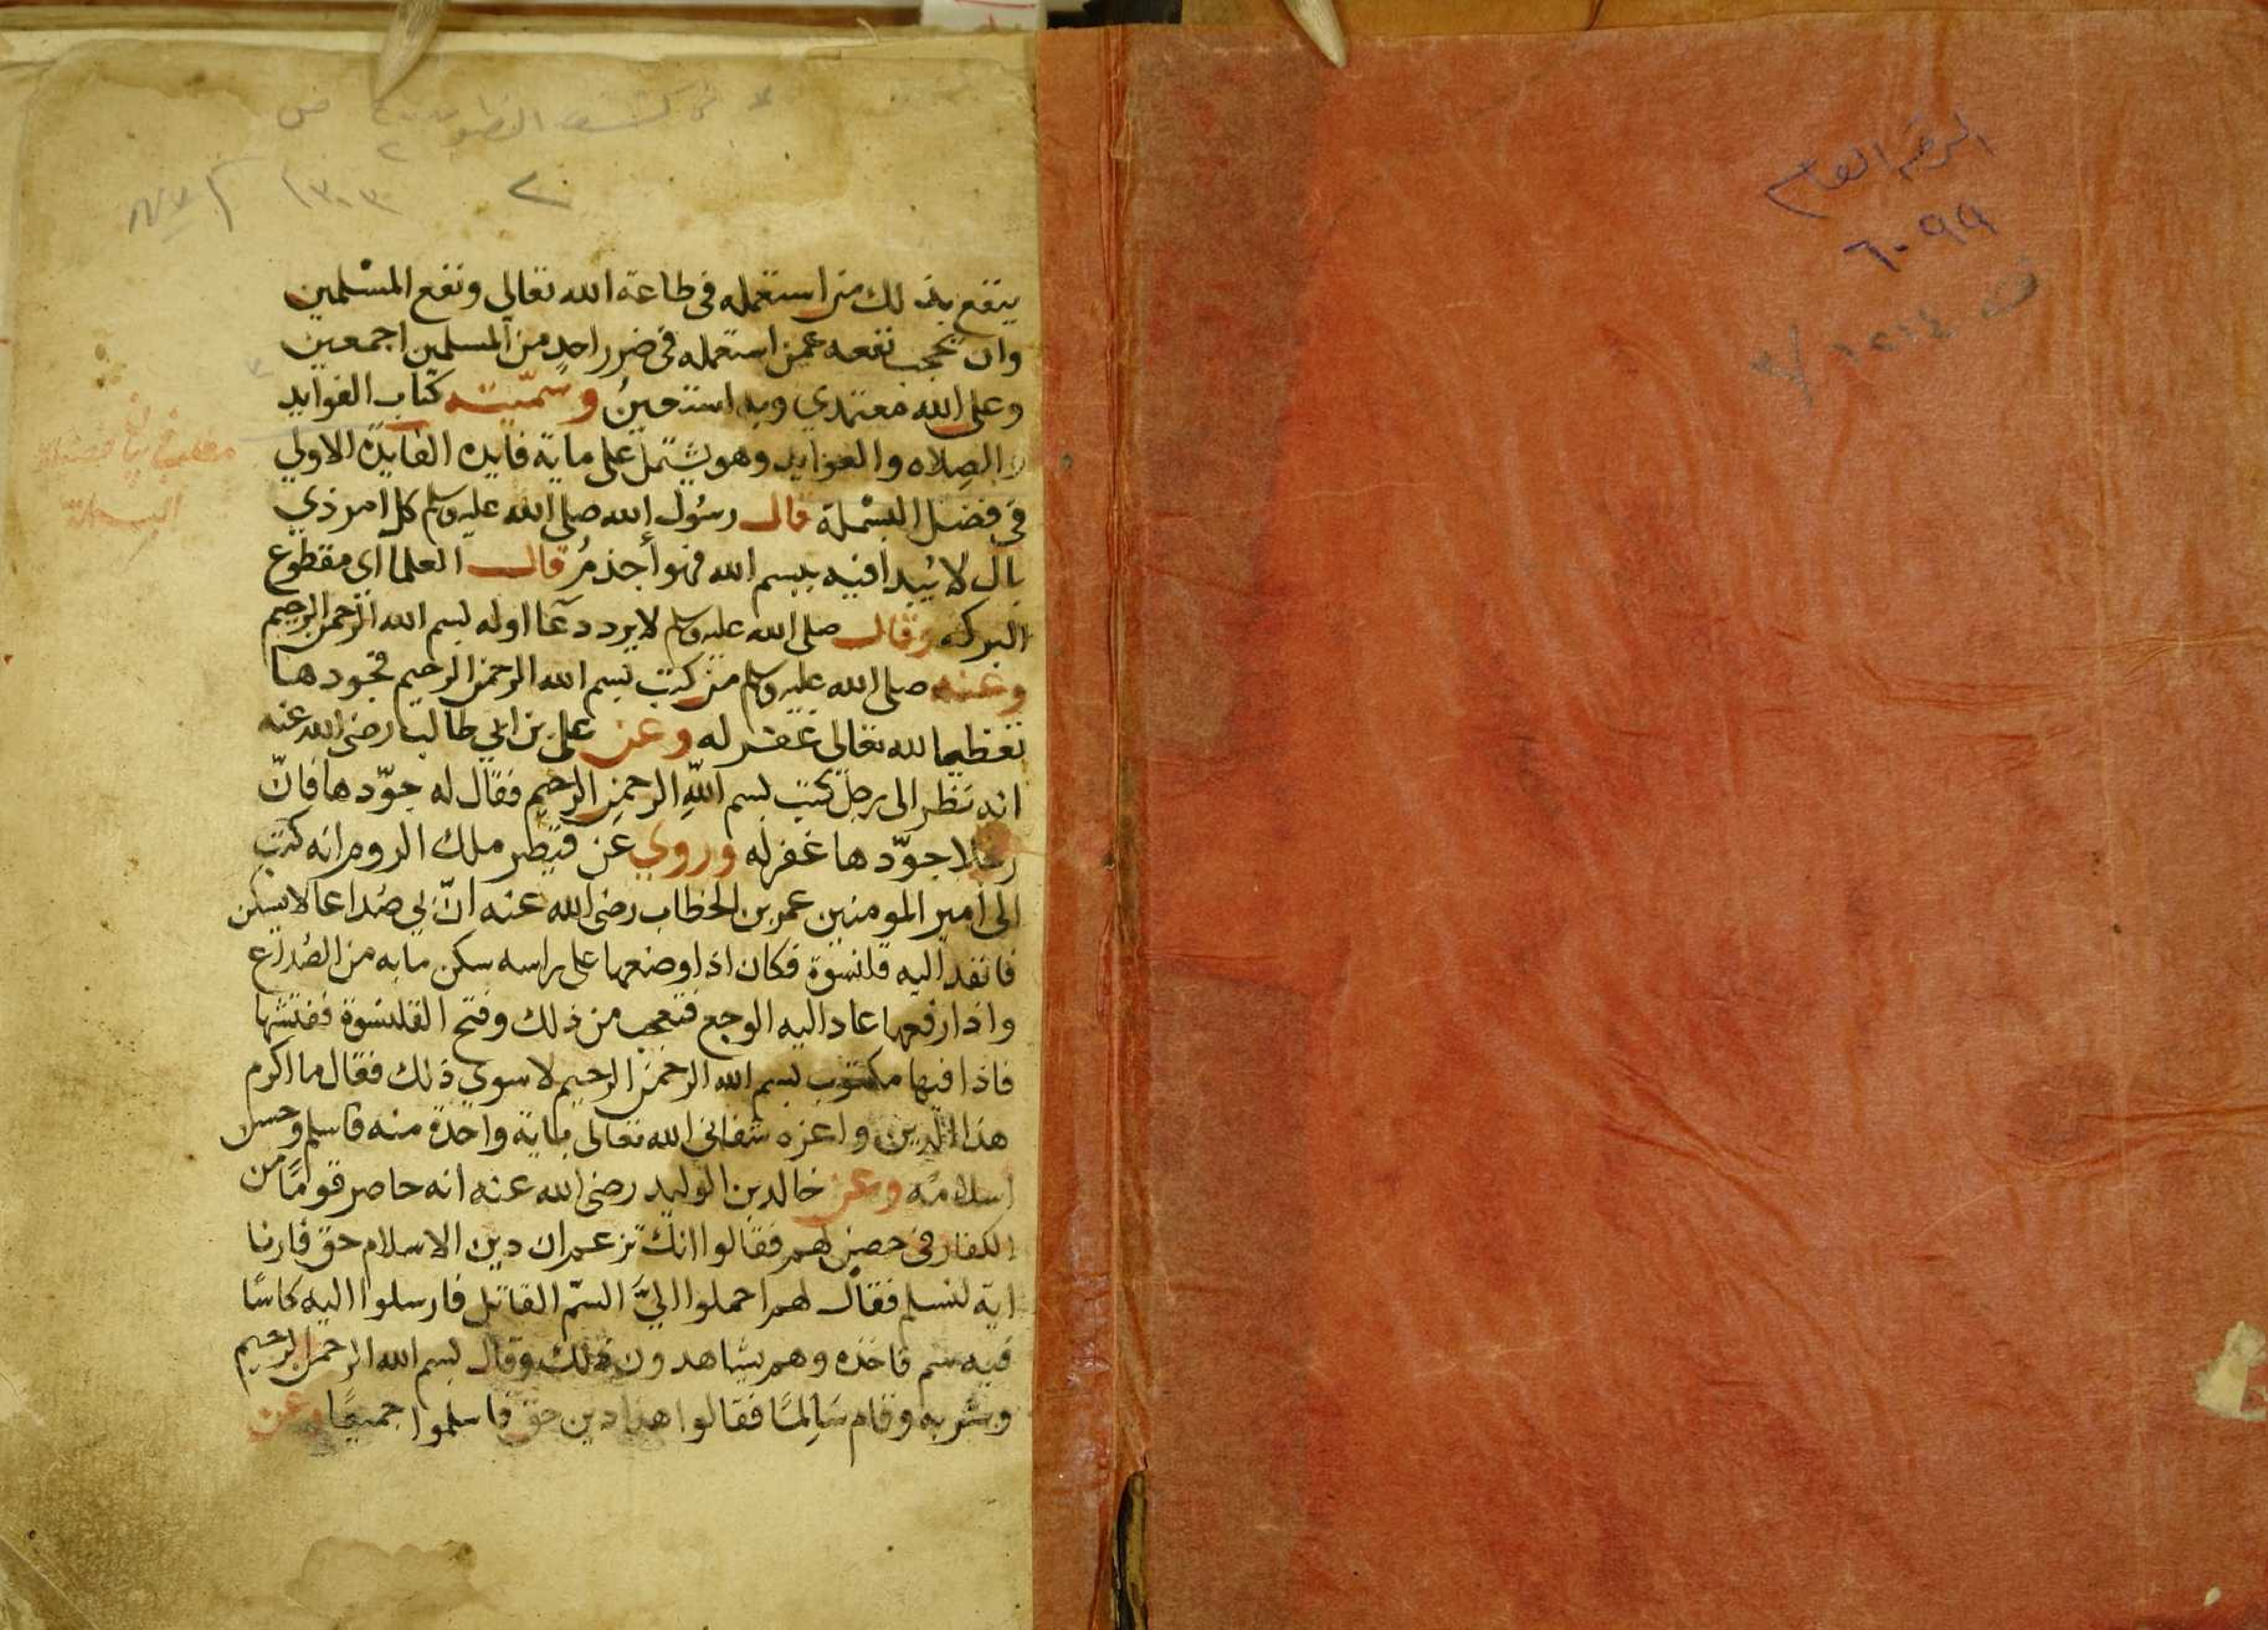 الرقم العام
٦٠٩٩
في كشف الظنون ص
٢
١٣٠٣
ينفع بذلك من استعمله في طاعة الله تعالى ونفع المسلمين
وان يحجب نفعه عمن استعمله في ضرر احدٍ من المسلمين اجمعين
وعلى الله معتمدي وبه استعينُ وسمّيته كتاب الفوايد
والصِلاه والعوايد وهو يشتمل على ماية فايده الفايدة الاولى
في فضل البسْملة قال رسُول الله صلى الله عليه وسلم كل امر ذي
بال لا يُبدا فيه ببسم الله فهو أجذمُ قال العلما اي مقطوع
البركه وقال صلى الله عليه وسلم لا يرد دعآ اوله بسم الله الرحمن الرحيم
وعنه صلى الله عليه وسلم من كتب بسم الله الرحمن الرحيم فجودها
تعظيما لله تعالى غفر له وعن على بن ابي طالب رضي الله عنه
انه نظر الى رجل يكتب بسم اللهِ الرحمنِ الرحيمِ فقال له جوّدها فانّ
رجلا جوّدها غفر له وروي عن قيصر ملك الروم انه كتب
الى امير المومنين عمر بن الخطاب رضي الله عنه انّ بي صُداعا لا يسكن
فانفد اليه قلنسُوة فكان اذا وضعها على راسه سكن ما به من الصُداع
واذا رفعها عاد اليه الوجع فتعجب من ذلك وفتح القلنسُوة ففتشها
فاذا فيها مكتوب بسم الله الرحمن الرحيم لا سوى ذلك فقال ما اكرم
هذا الدين واعزه شفاني الله تعالى باية واحدة منه فاسلم وحسن
اسلامُه وعن خالد بن الوليد رضي الله عنه انه حاصر قومًا من
الكفار في حصن لهم فقالوا انك تزعم ان دين الاسلام حق فارنا
اية لنسلم فقال لهم احملوا اليَّ السمّ القاتل فارسلوا اليه كاسًا
فيه سم فاخذه وهم يشاهدون ذلك وقال بسم الله الرحمن الرحيم
وشربه وقام سَالمًا فقالوا هذا دين حق فاسلموا جميعًا وعن
مطلب في بيان فضيلة
البسملة